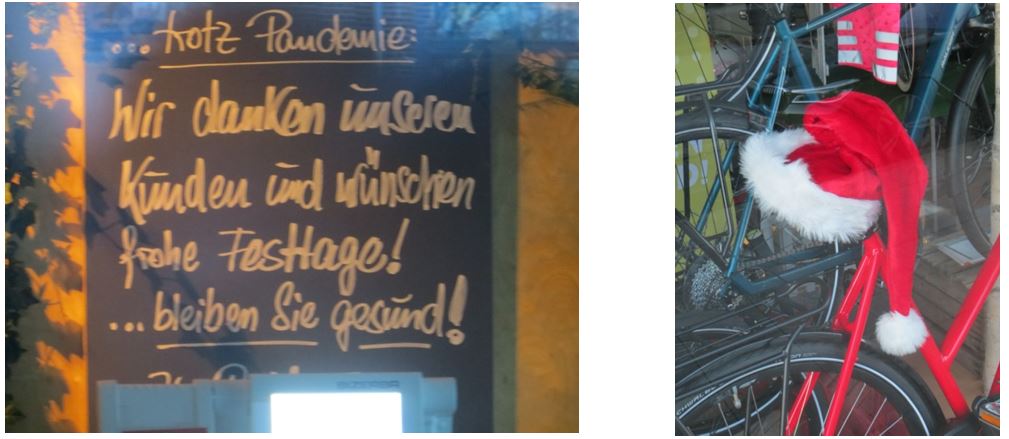 ... trotz Pandemie:
Wir danken unseren
Kunden und wünschen
frohe Festtage!
... bleiben Sie gesund!
BIZERBA
SCHWALBE